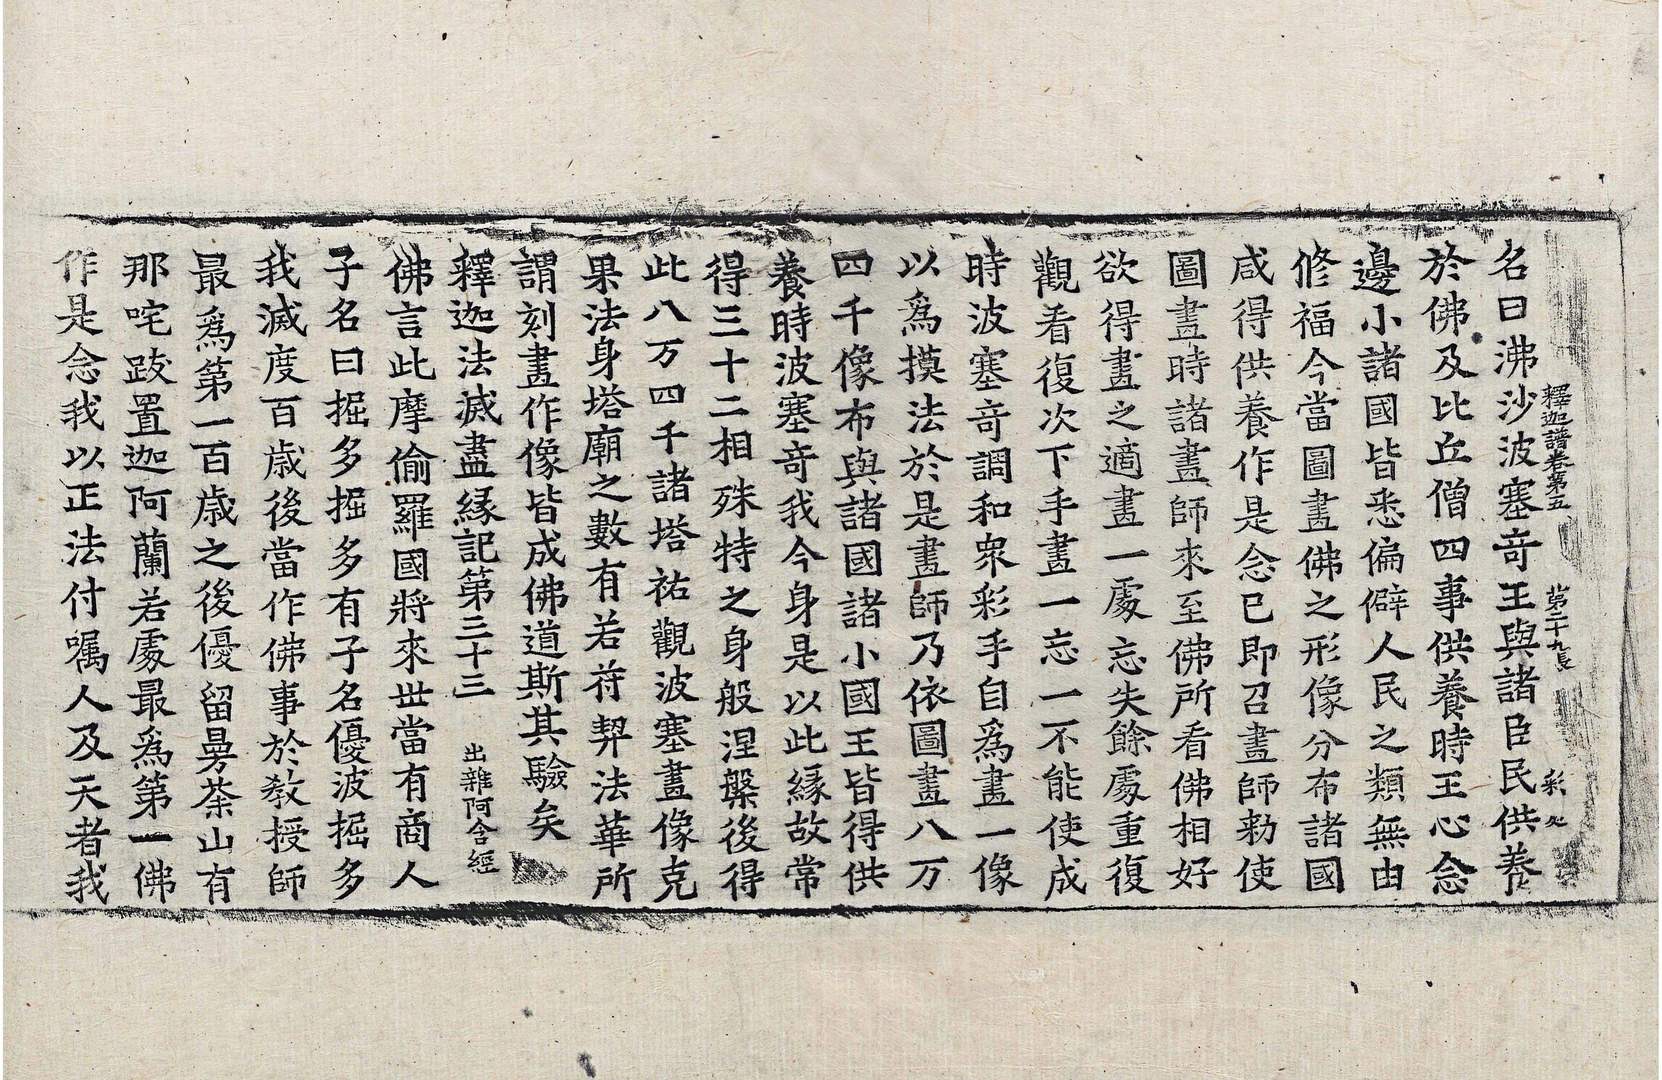 釋迦譜卷第五 第二十九張 彩 처
名曰沸沙波塞竒王與諸臣民供養
於佛及比丘僧四事供養時王心念
邊小諸國皆悉偏僻人民之類無由
俢福今當圖畫佛之形像分布諸國
咸得供養作是念已即召畫師勑使
圖畫時諸畫師來至佛所看佛相好
欲得畫之適畫一處忘失餘處重復
觀看復次下手畫一忘一不能使成
時波塞竒調和衆彩手自爲畫一像
以爲摸法於是畫師乃依圖畫八万
四千像布與諸國諸小國王皆得供
養時波塞竒我今身是以此縁故常
得三十二相殊特之身般涅槃後得
此八万四千諸塔祐觀波塞畫像克
果法身塔廟之數有若符契法華所
謂刻畫作像皆成佛道斯其驗矣
釋迦法滅盡縁記第三十三 出雜阿含經
佛言此摩偷羅國將來世當有商人
子名曰掘多掘多有子名優波掘多
我滅度百歳後當作佛事於教授師
最爲第一百歳之後優留曼荼山有
那咤跋置迦阿蘭若處最爲第一佛
作是念我以正法付囑人及天者我